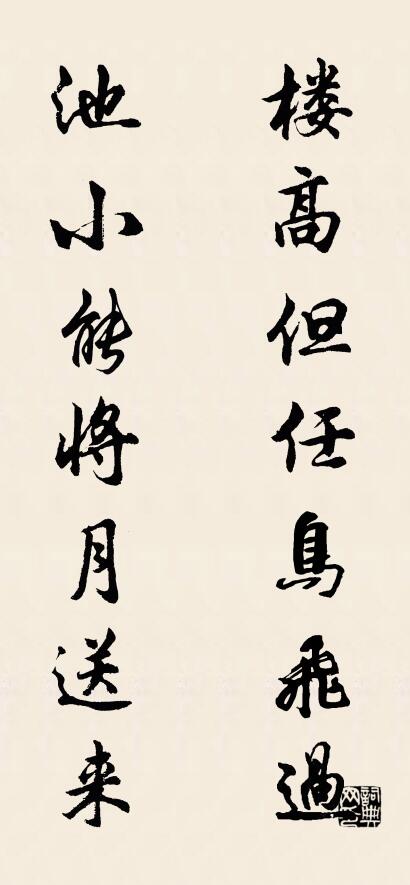 楼高但任鳥飛過
池小能将月送来
詞典網